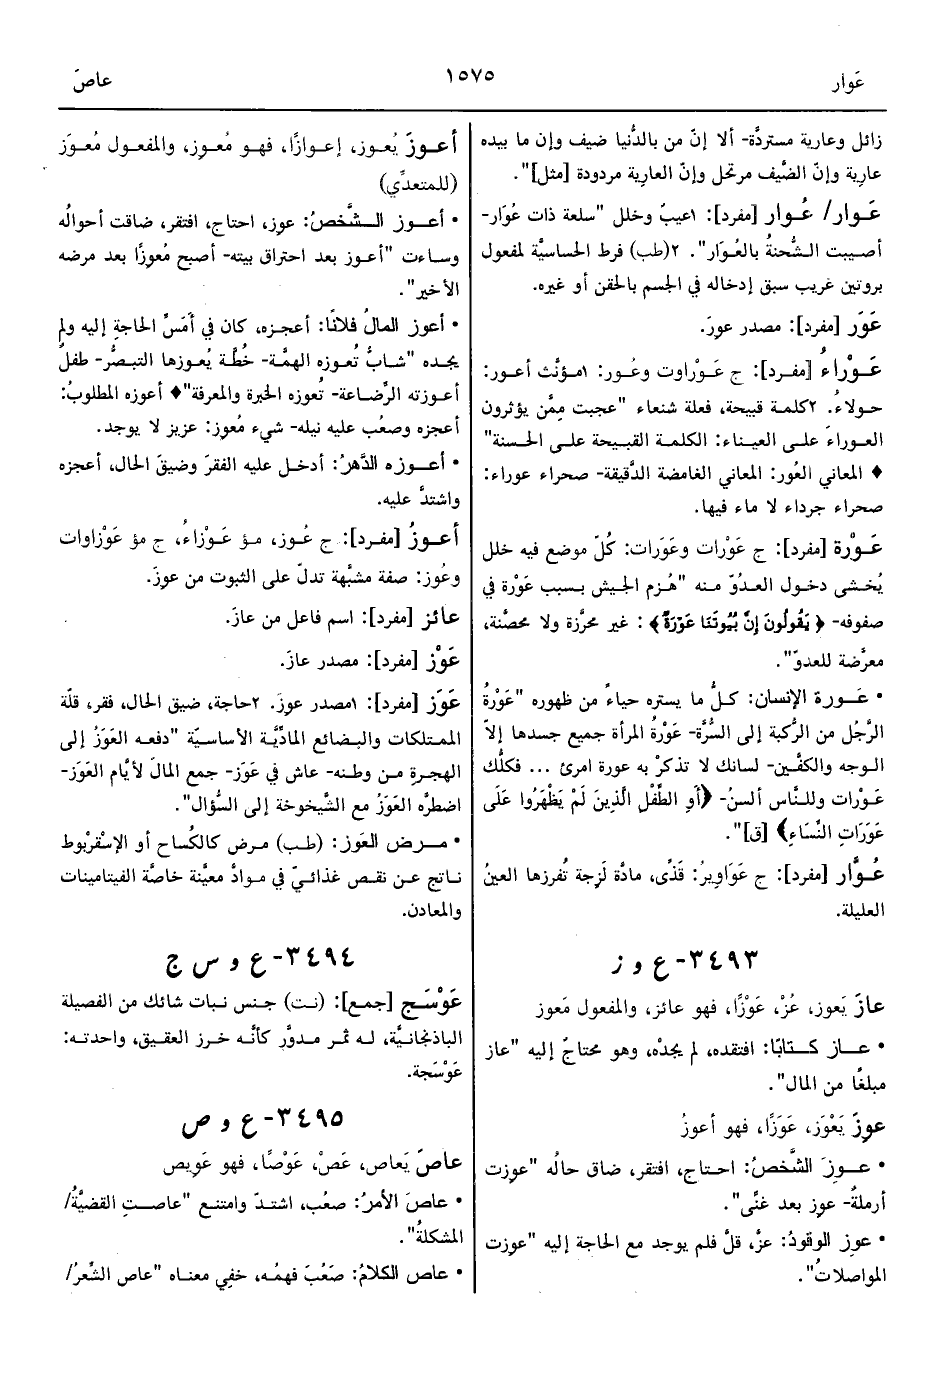 عَوار
١٥٧٥
عاصَ
زائل وعارية مستردَّة- ألا إنّ من بالدُّنيا ضيف وإن ما بيده
عارية وإنّ الضَّيف مرتحل وإنّ العارية مردودة [مثل]".
عَوار/ عُوار [مفرد]: ١عيبٌ وخلل "سلعة ذات عُوَار-
أصيبت الشُّحنةُ بالعُوَار". ٢(طب) فرط الحساسيَّة لمفعول
بروتين غريب سبق إدخاله في الجسم بالحقن أو غيره.
عَوَر [مفرد]: مصدر عوِرَ.
عَوْراءُ [مفرد]: ج عَوْراوت وعُور: ١مؤنَّث أعور:
حولاءُ. ٢كلمة قبيحة، فعلة شنعاء "عجبت مِمَّن يؤثرون
العوراءَ على العيناء: الكلمة القبيحة على الحسنة"
♦ المعاني العُور: المعاني الغامضة الدَّقيقة- صحراء عوراء:
صحراء جرداء لا ماء فيها.
عَوْرة [مفرد]: ج عَوْرات وعَوَرات: كُلّ موضع فيه خلل
يُخشى دخول العدوّ منه "هُزم الجيش بسبب عَوْرة في
صفوفه- ﴿يَقُولُونَ إِنَّ بُيُوتَنَا عَوْرَةٌ﴾: غير محرَّزة ولا محصَّنة،
معرَّضة للعدوّ".
• عَورة الإنسان: كلُّ ما يستره حياءً من ظهوره "عَوْرةُ
الرَّجُل من الرُّكبة إلى السُّرَّة- عَوْرةُ المرأة جميع جسدها إلاّ
الوجه والكفَّين- لسانك لا تذكرْ به عورة امرئ ... فكلُّك
عَوْرات وللنَّاس ألسنُ- ﴿أَوِ الطِّفْلِ الَّذِينَ لَمْ يَظْهَرُوا عَلَى
عَوَرَاتِ النِّسَاءِ﴾ [ق]".
عُوَّار [مفرد]: ج عَوَاوِيرُ: قَذًى، مادَّة لَزِجة تُفرزها العينُ
العليلة.
٣٤٩٣- ع و ز
عازَ يَعوز، عُزْ، عَوْزًا، فهو عائز، والمفعول مَعوز
• عاز كتابًا: افتقده، لم يجدْه، وهو محتاجٌ إليه "عاز
مبلغًا من المال".
عوِزَ يَعْوَز، عَوَزًا، فهو أعوزُ
• عوِزَ الشَّخصُ: احتاج، افتقر، ضاق حالُه "عوِزت
أرملةٌ- عوز بعد غنًى".
• عوِز الوقودُ: عزّ، قلَّ فلم يوجد مع الحاجة إليه "عوِزت
المواصلاتُ".
أعوزَ يُعوز، إعوازًا، فهو مُعوِز، والمفعول مُعوَز
(للمتعدِّي)
• أعوز الشَّخصُ: عوِز، احتاج، افتقر، ضاقت أحوالُه
وساءت "أعوز بعد احتراق بيته- أصبح مُعوِزًا بعد مرضه
الأخير".
• أعوز المالُ فلانًا: أعجزه، كان في أمَسِّ الحاجة إليه ولم
يجده "شابٌّ تُعوزه الهمَّة- خُطَّة يُعوزها التبصُّر- طفلٌ
أعوزته الرَّضاعة- تُعوزه الخبرة والمعرفة"♦ أعوزه المطلوبُ:
أعجزه وصعُب عليه نيله- شيء مُعوِز: عزيز لا يوجد.
• أعوزه الدَّهرُ: أدخل عليه الفقرَ وضيقَ الحال، أعجزه
واشتدَّ عليه.
أعوزُ [مفرد]: ج عُوز، مؤ عَوْزاءُ، ج مؤ عَوْزاوات
وعُوز: صفة مشبَّهة تدلّ على الثبوت من عوِزَ.
عائز [مفرد]: اسم فاعل من عازَ.
عَوْز [مفرد]: مصدر عازَ.
عَوَز [مفرد]: ١مصدر عوِزَ. ٢حاجة، ضيق الحال، فقر، قلّة
الممتلكات والبضائع المادِّيَّة الأساسيَّة "دفعه العَوَزُ إلى
الهجرة من وطنه- عاش في عَوَز- جمع المالَ لأيَّام العَوَز-
اضطرَّه العَوَزُ مع الشَّيخوخة إلى السُّؤال".
• مرض العَوَز: (طب) مرض كالكُساح أو الإسْقربُوط
ناتج عن نقص غذائيّ في موادَّ معيَّنة خاصَّة الفيتامينات
والمعادن.
٣٤٩٤- ع و س ج
عَوْسَج [جمع]: (نت) جنس نبات شائك من الفصيلة
الباذنجانيَّة، له ثمر مدوَّر كأنَّه خرز العقيق، واحدته:
عَوْسَجة.
٣٤٩٥- ع و ص
عاصَ يَعاص، عَصْ، عَوْصًا، فهو عَوِيص
• عاصَ الأمرُ: صعُب، اشتدّ وامتنع "عاصتِ القضيَّةُ/
المشكلةُ".
• عاص الكلامُ: صَعُبَ فهمُه، خفِي معناه "عاص الشِّعرُ/